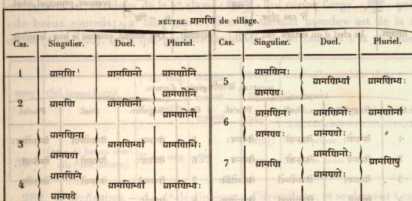 NEUTRE. ग्रामणि de village.
Cas. Singulier. Duel. Pluriel. Cas. Singulier. Duel. Pluriel.
1 ग्रामणि ग्रामणिनी ग्रामणीनि
2 ग्रामणि ग्रामणिनी
3 ग्रामणिना ग्रामणिभ्यां ग्रामणिभिः
ग्रामण्या
4 ग्रामणिने ग्रामणिभ्यां ग्रामणिभ्यः
5 ग्रामणिनः ग्रामणिभ्यां ग्रामणिभ्यः
ग्रामण्यः
6 ग्रामणिनः ग्रामणिनोः
ग्रामण्यः ग्रामण्योः
7 ग्रामणि ग्रामणिनोः ग्रामणिषु
ग्रामण्योः